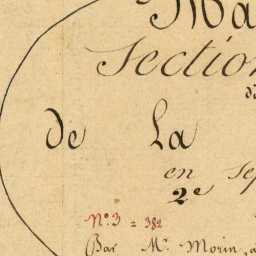 Ma
Section
de La
en sep
2e
N.° 3 = 382
Par Mr. Morin, a